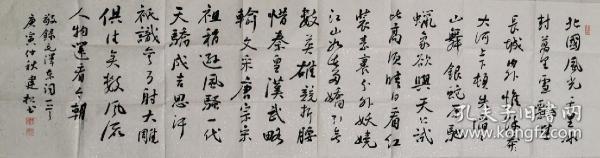 北國風光千里冰
封萬里雪飄望
長城內外惟餘莽
大河上下頓失滔
山舞銀蛇原馳
蠟象欲與天公試
比高須晴日看紅
裝素裹分外妖嬈
江山如此多嬌引無
數英雄競折腰
惜秦皇漢武略
輸文采唐宗宋
祖稍遜風騷一代
天驕成吉思汗
祇識彎弓射大雕
俱往矣數風流
人物還看今朝
敬錄毛澤東詞一首
庚寅仲秋建松書